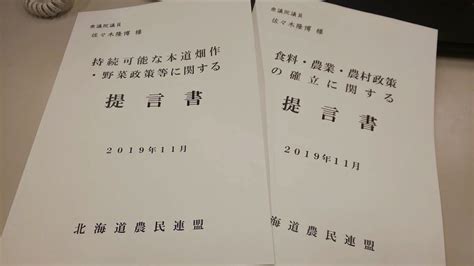 衆議院議員
佐々木隆博 様
持続可能な本道畑作
・野菜政策等に関する
提言書
2019年11月
北海道農民連盟
衆議院議員
佐々木隆博 様
食料・農業・農村政策
の確立に関する
提言書
2019年11月
北海道農民連盟